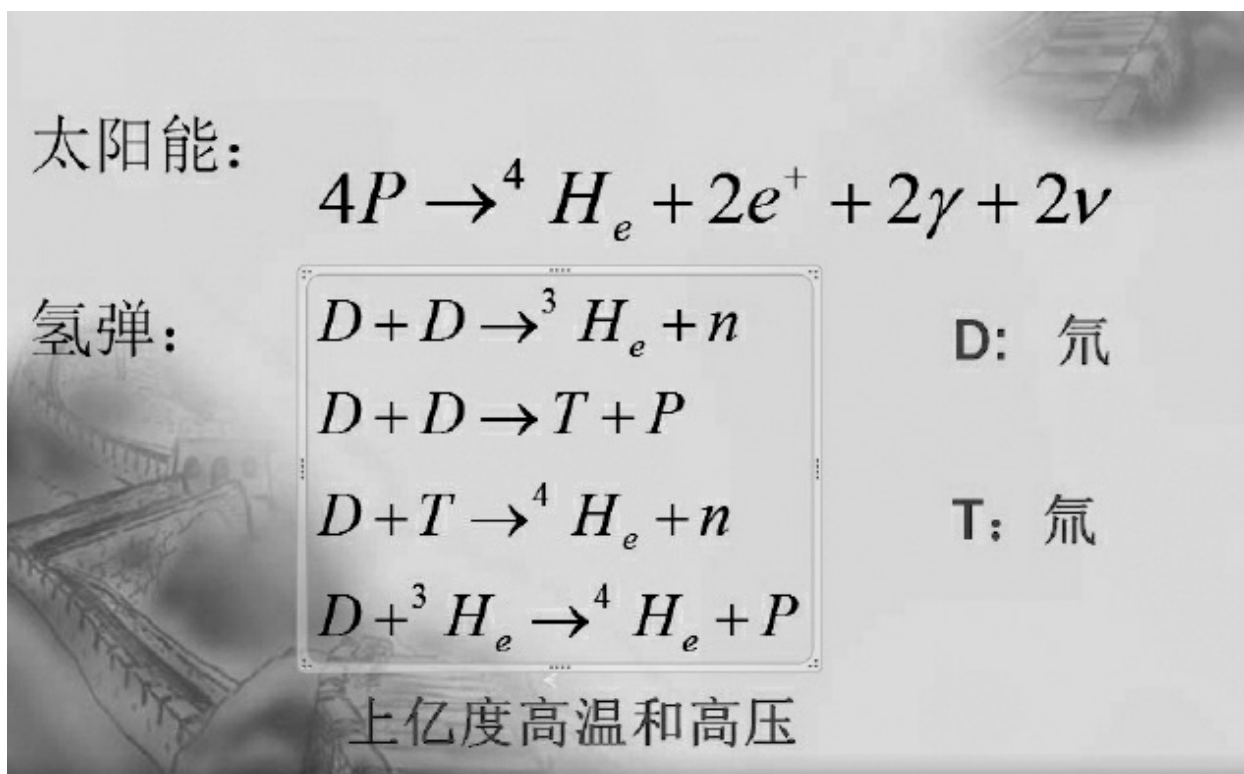 太阳能：
4P → ⁴Hₑ + 2e⁺ + 2γ + 2ν
氢弹：
D + D → ³Hₑ + n
D: 氘
D + D → T + P
D + T → ⁴Hₑ + n
T：氚
D + ³Hₑ → ⁴Hₑ + P
上亿度高温和高压